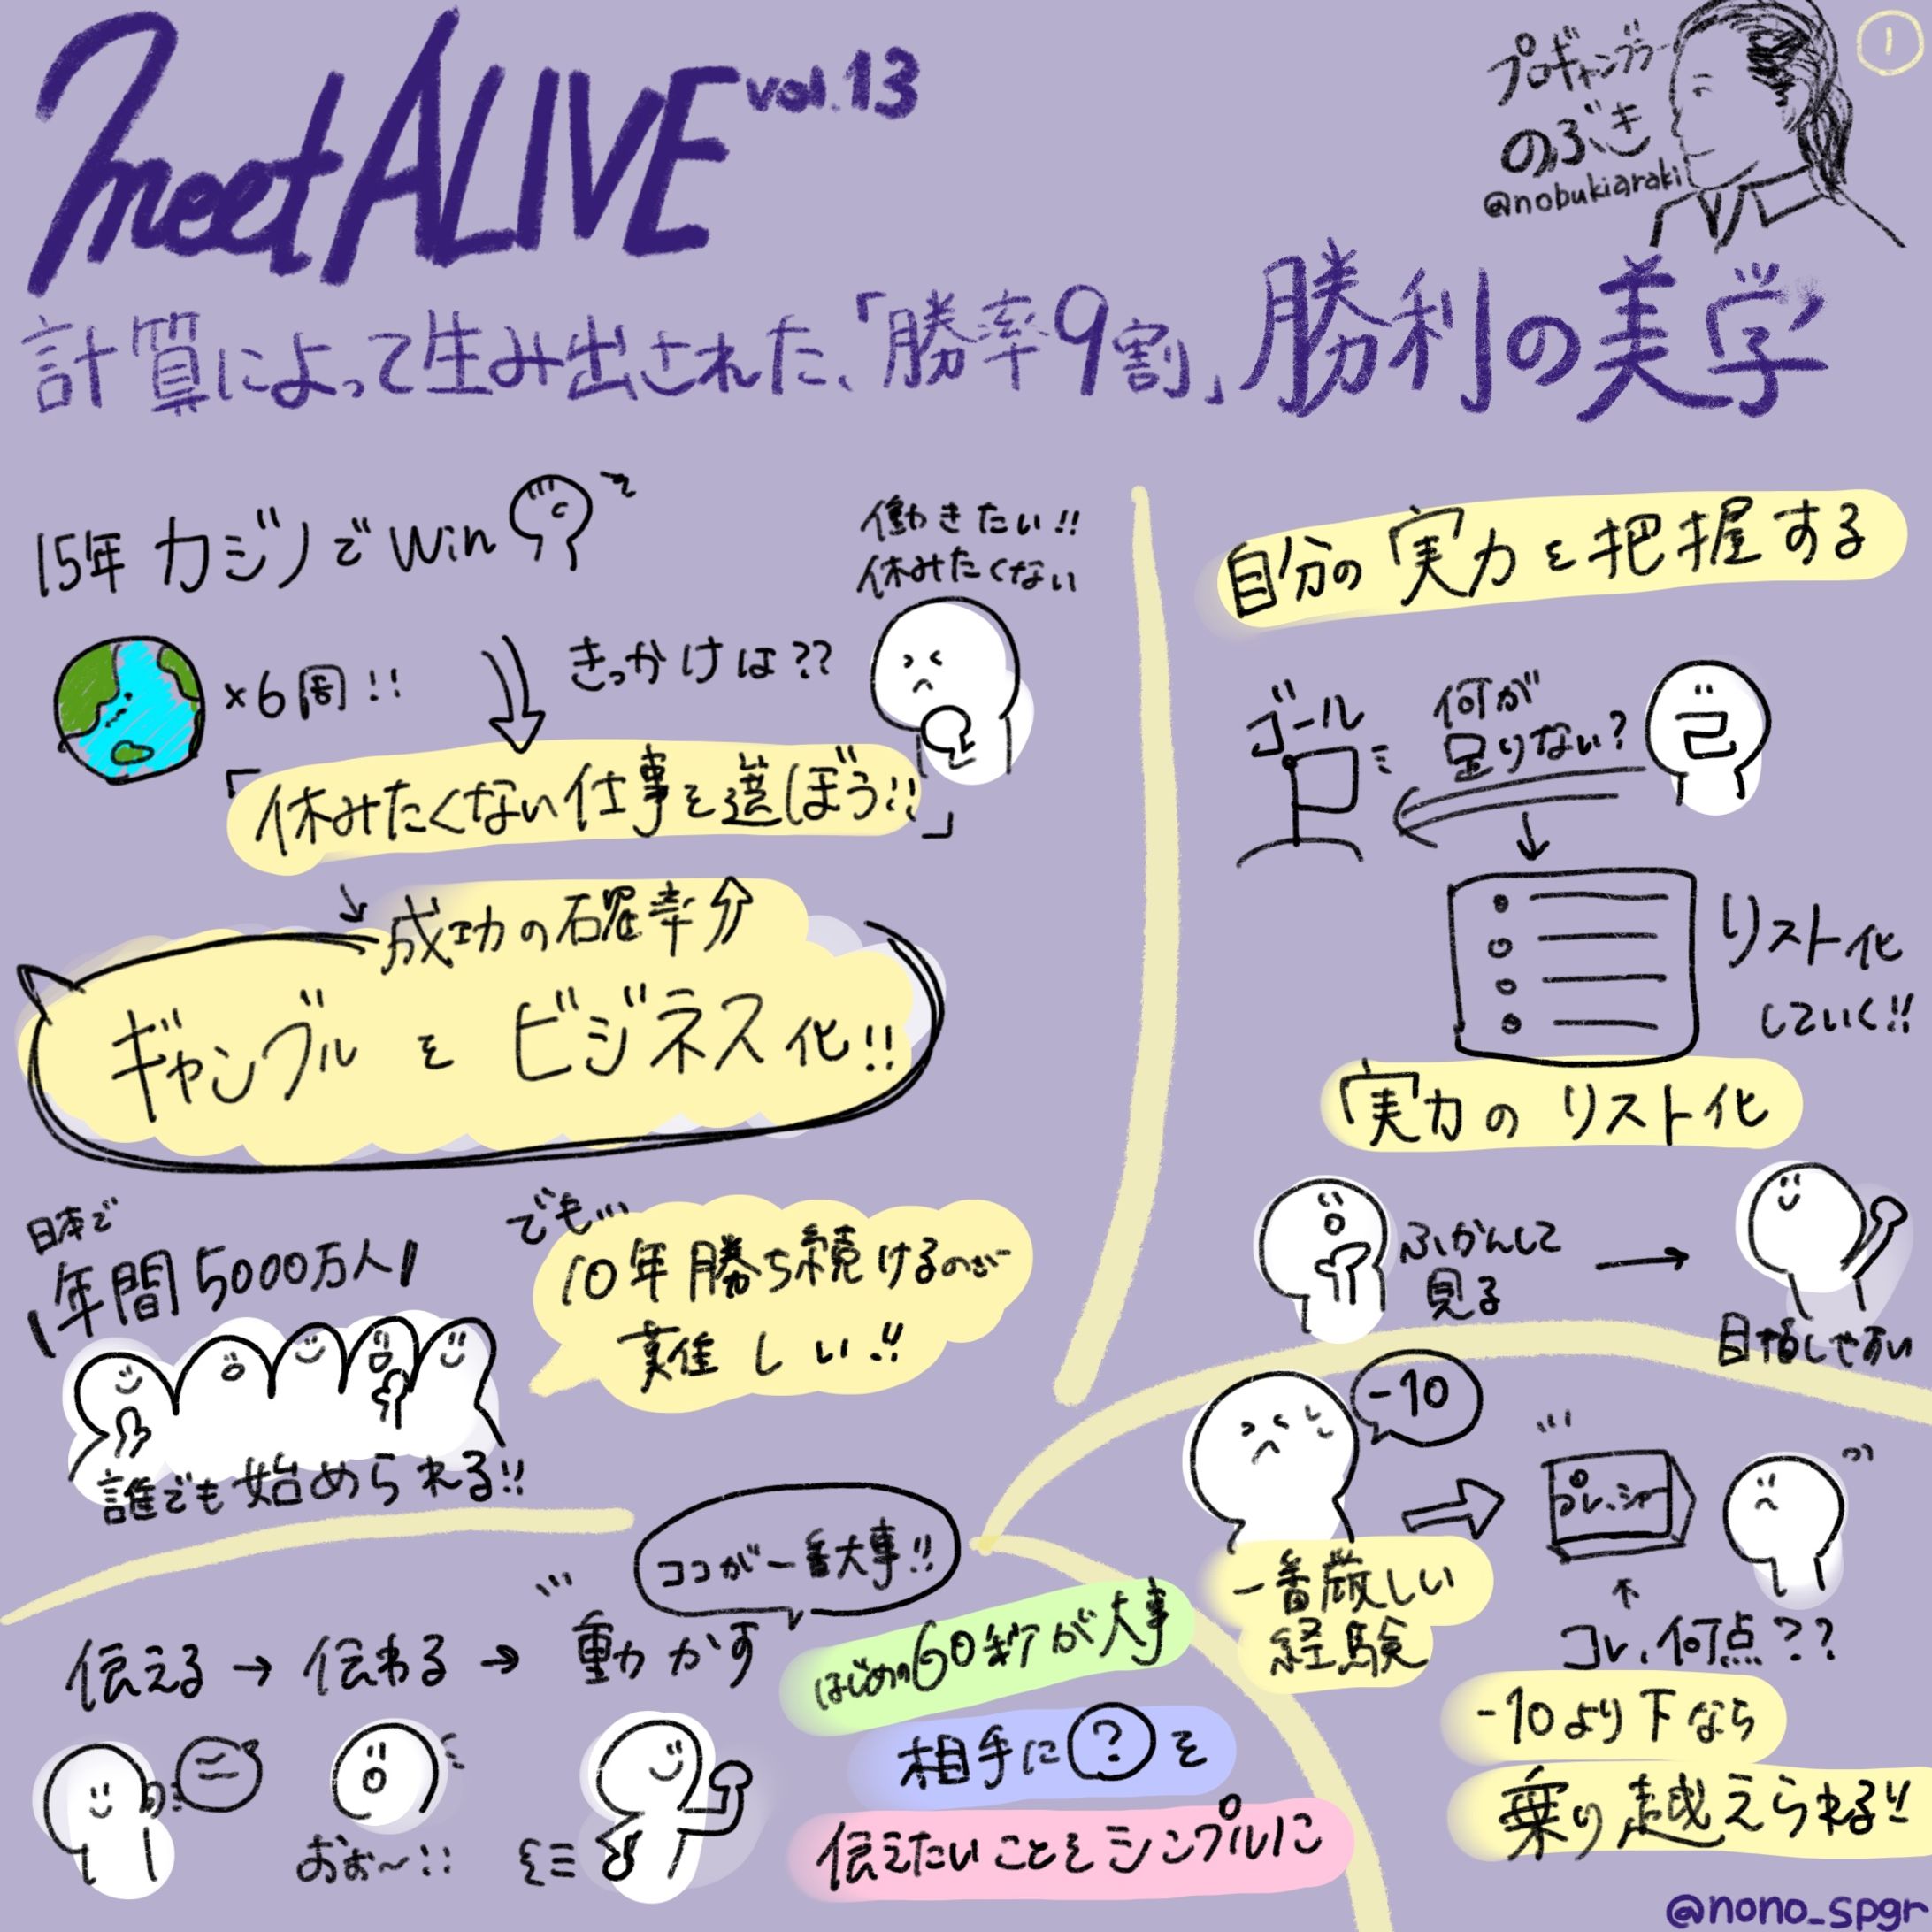 meetALIVE vol.13
プロギャンブラー
のぶき
@nobukiaraki
1
計算によって生み出された、「勝率9割」勝利の美学
15年 カジノで Win
×6周!!
きっかけは??
働きたい!!
休みたくない
「休みたくない仕事を選ぼう!!」
成功の確率分
ギャンブル を ビジネス化!!
日本で
年間5000万人
誰でも始められる!!
でも…
10年勝ち続けるのが
難しい!!
自分の実力を把握する
ゴール
何が
足りない?
己
リスト化
していく!!
実力の リスト化
ふかんして
見る
目指しやすい
-10
一番厳しい
経験
プレッシャー
コレ、何点??
-10より下なら
乗り越えられる!!
ココが一番大事!!
伝える → 伝わる → 動かす
おぉ〜!!
はじめの60秒が大事
相手に?を
伝えたいことをシンプルに
@nono_spgr